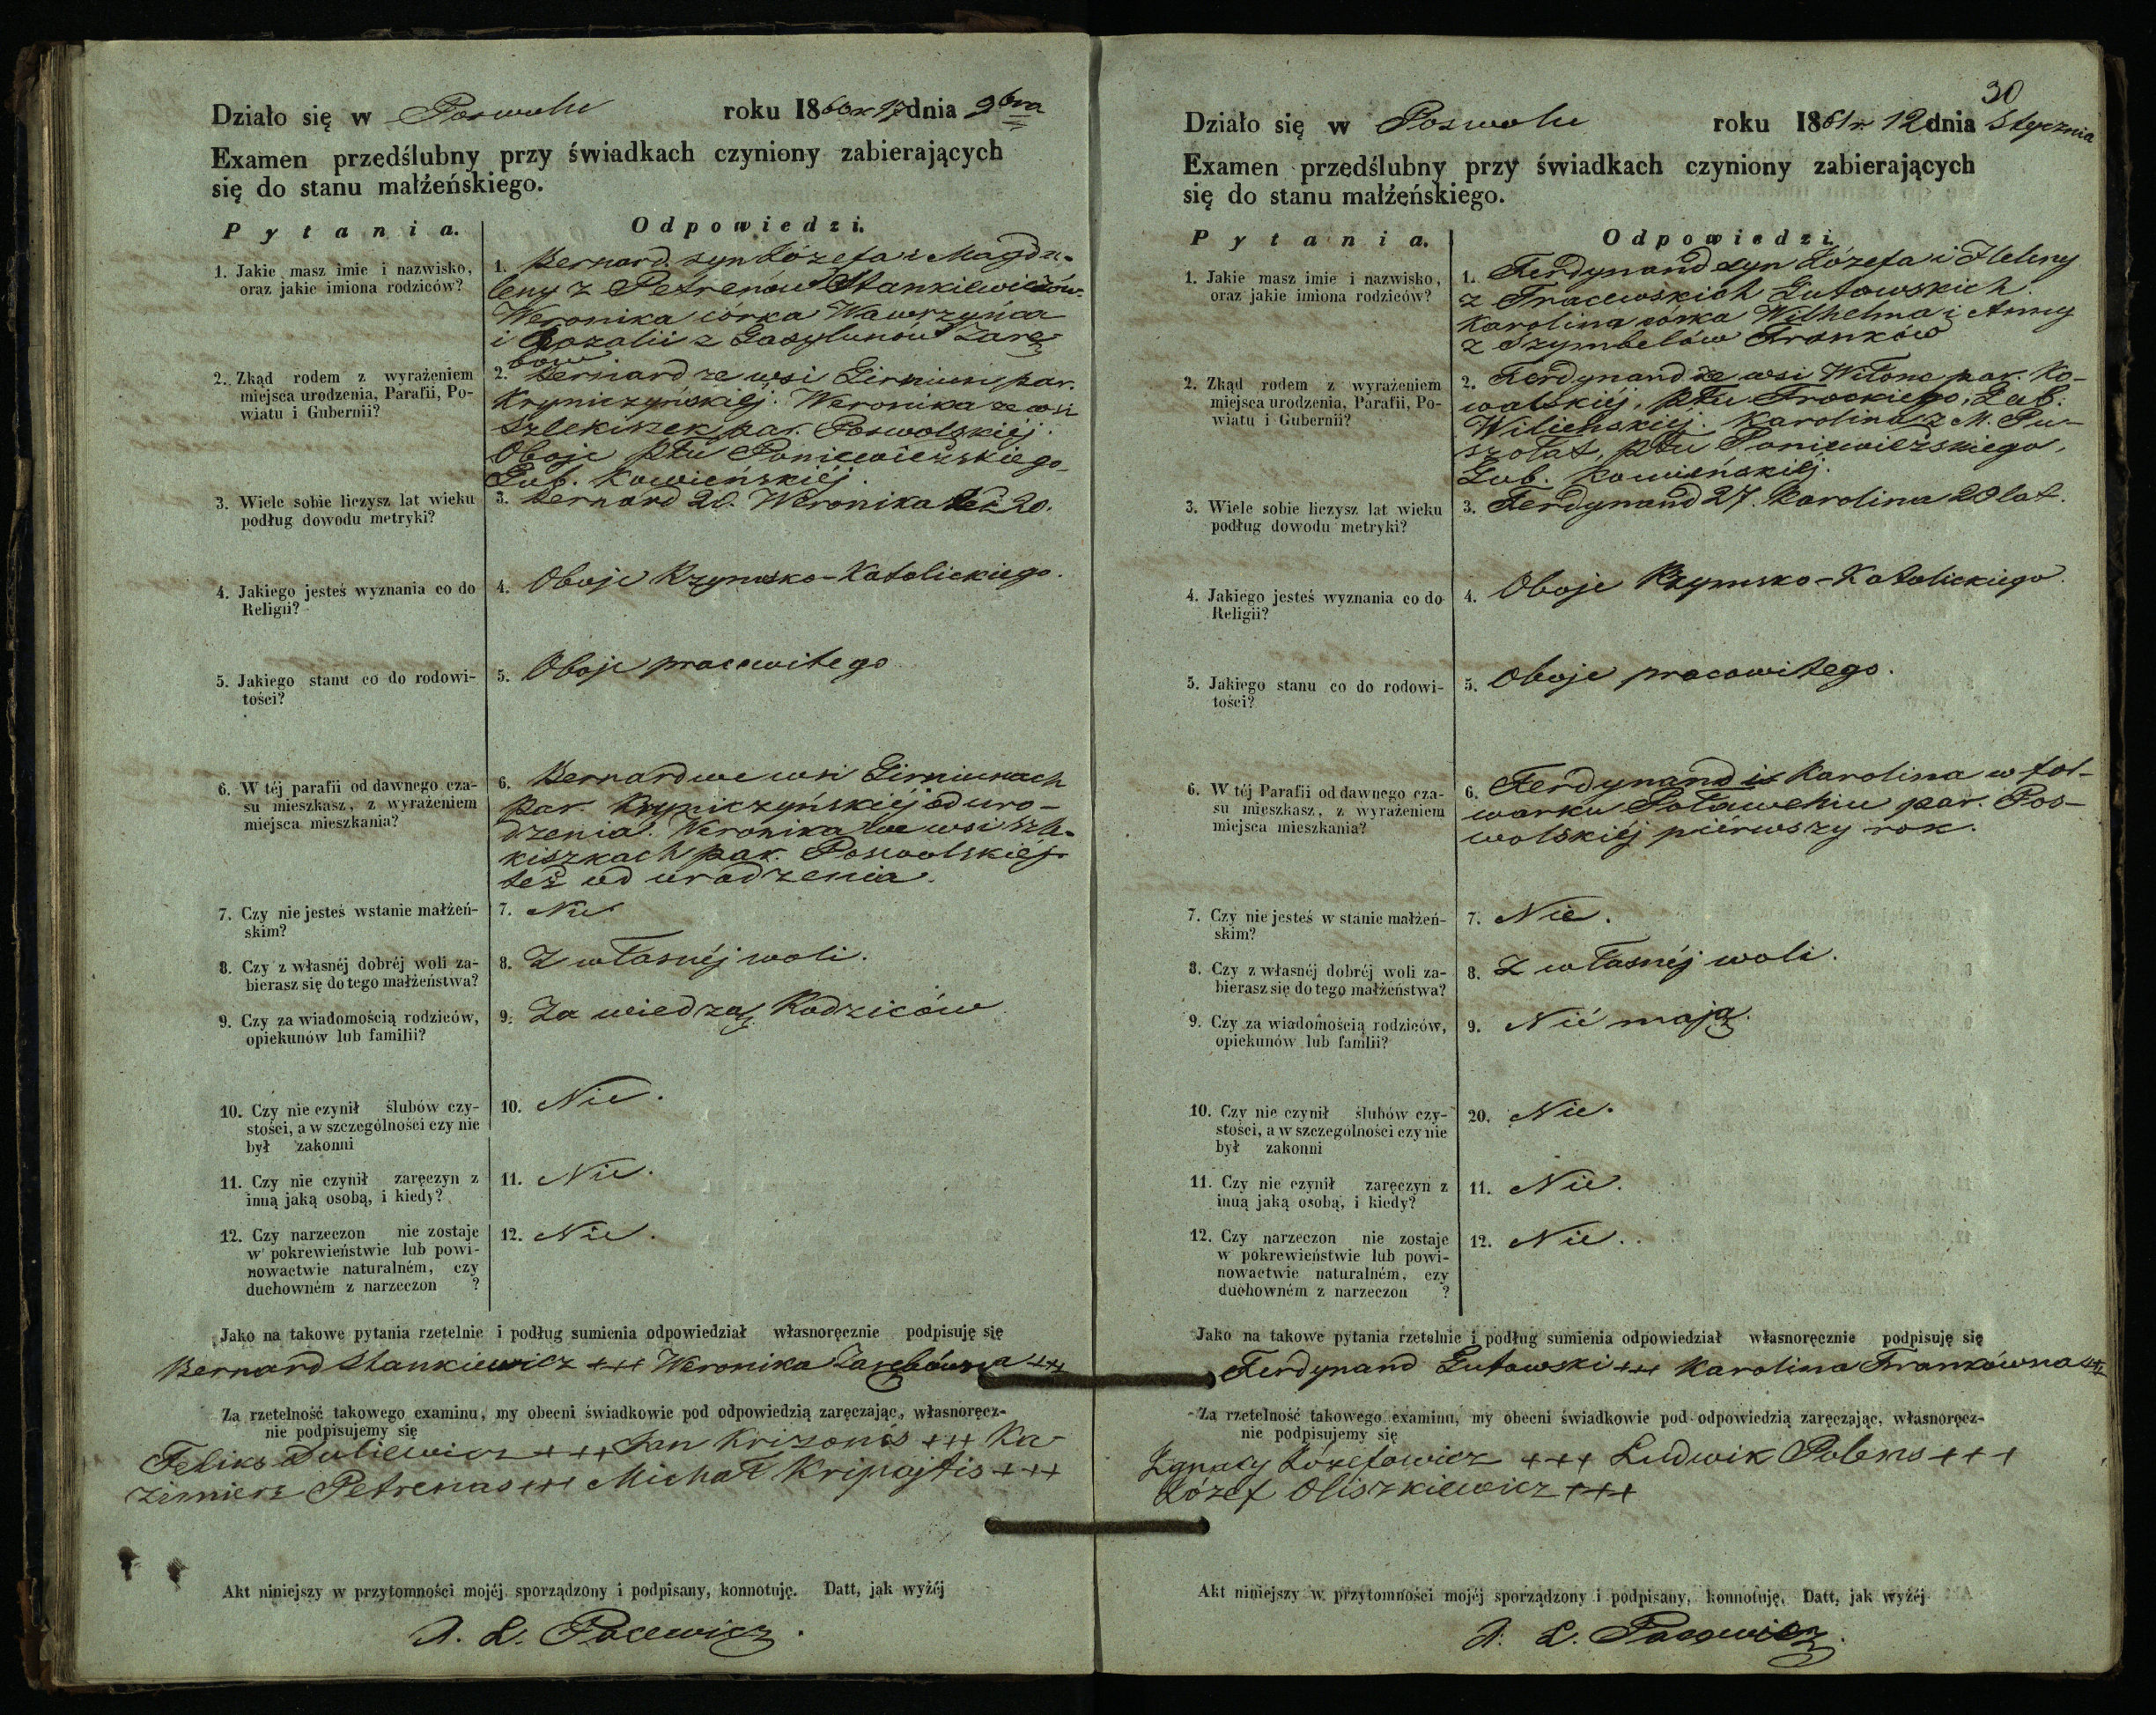 Działo się w Poswolu roku 1860 r. 17 dnia 9bra
Examen przedślubny przy świadkach czyniony zabierających
się do stanu małżeńskiego.
Pytania. Odpowiedzi.
1. Jakie masz imie i nazwisko,
oraz jakie imiona rodziców?
1. Bernard syn Józefa i Magda-
leny z Petrenów Stankiewiczów.
Weronika córka Wawrzyńca
i Rozalii z Gasylunów Zarę-
bów
2. Zkąd rodem z wyrażeniem
miejsca urodzenia, Parafii, Po-
wiatu i Gubernii?
2. Bernard ze wsi Girniun par.
Kryniczyńskiéj. Weronika ze wsi
Szlekiszek par. Poswolskiéj.
Oboje pttu Poniewieżskiego
Gub. Kowieńskiéj.
3. Wiele sobie liczysz lat wieku
podług dowodu metryki?
3. Bernard 20. Weronika lat 20.
4. Jakiego jesteś wyznania co do
Religii?
4. Oboje Rzymsko-Katolickiego.
5. Jakiego stanu co do rodowi-
tości?
5. Oboje pracowitego
6. W téj parafii od dawnego cza-
su mieszkasz, z wyrażeniem
miejsca mieszkania?
6. Bernard we wsi Girniunach
par. Kryniczyńskiéj od uro-
dzenia. Weronika we wsi Szle-
kiszkach par. Poswolskiéj
też od urodzenia.
7. Czy nie jesteś wstanie małżeń-
skim?
7. Nie
8. Czy z własnéj dobréj woli za-
bierasz się do tego małżeństwa?
8. Z własnéj woli.
9. Czy za wiadomością rodziców,
opiekunów lub familii?
9. Za wiedzą Rodziców
10. Czy nie czynił ślubów czy-
stości, a w szczególności czy nie
był zakonni
10. Nie.
11. Czy nie czynił zaręczyn z
inną jaką osobą, i kiedy?
11. Nie.
12. Czy narzeczon nie zostaje
w pokrewieństwie lub powi-
nowactwie naturalném, czy
duchowném z narzeczon ?
12. Nie.
Jako na takowe pytania rzetelnie i podług sumienia odpowiedział własnoręcznie podpisuję się
Bernard Stankiewicz +++ Weronika Zarębówna +++
Za rzetelność takowego examinu, my obecni świadkowie pod odpowiedzią zaręczając, własnoręcz-
nie podpisujemy się
Feliks Dulewicz +++ Jan Krizonis +++ Ka-
zimierz Petrenas +++ Michał Kripajtis +++
Akt niniejszy w przytomności mojéj sporządzony i podpisany, konnotuję. Datt, jak wyżéj
A. L. Pacewicz.
30
Działo się w Poswolu roku 1861 r. 12 dnia Stycznia
Examen przedślubny przy świadkach czyniony zabierających
się do stanu małżeńskiego.
Pytania. Odpowiedzi.
1. Jakie masz imie i nazwisko,
oraz jakie imiona rodziców?
1. Ferdynand syn Józefa i Heleny
z Tracewskich Gutowskich.
Karolina córka Wilhelma i Anny
z Szymbelów Franków
2. Zkąd rodem z wyrażeniem
miejsca urodzenia, Parafii, Po-
wiatu i Gubernii?
2. Ferdynand ze wsi Witone par. Ko-
walskiej, pttu Trockiego, Gub.
Wileńskiej. Karolina z M. Pu-
szołat, pttu Poniewieżskiego,
Gub. Kowieńskiéj.
3. Wiele sobie liczysz lat wieku
podług dowodu metryki?
3. Ferdynand 27. Karolina 20 lat.
4. Jakiego jesteś wyznania co do
Religii?
4. Oboje Rzymsko-Katolickiego.
5. Jakiego stanu co do rodowi-
tości?
5. Oboje pracowitego.
6. W téj Parafii od dawnego cza-
su mieszkasz, z wyrażeniem
miejsca mieszkania?
6. Ferdynand i Karolina w fol-
warku Poławeniu par. Pos-
wolskiéj piérwszy rok.
7. Czy nie jesteś w stanie małżeń-
skim?
7. Nie.
8. Czy z własnéj dobréj woli za-
bierasz się do tego małżeństwa?
8. Z własnéj woli.
9. Czy za wiadomością rodziców,
opiekunów lub familii?
9. Nié mają.
10. Czy nie czynił ślubów czy-
stości, a w szczególności czy nie
był zakonni
20. Nie.
11. Czy nie czynił zaręczyn z
inną jaką osobą, i kiedy?
11. Nie.
12. Czy narzeczon nie zostaje
w pokrewieństwie lub powi-
nowactwie naturalném, czy
duchowném z narzeczon ?
12. Nie.
Jako na takowe pytania rzetelnie i podług sumienia odpowiedział własnoręcznie podpisuję się
Ferdynand Gutowski +++ Karolina Frankówna +++
Za rzetelność takowego examinu, my obecni świadkowie pod odpowiedzią zaręczając, własnoręcz-
nie podpisujemy się
Ignacy Józefowicz +++ Ludwik Polens +++
Józef Oliszkiewicz +++
Akt niniejszy w przytomności mojéj sporządzony i podpisany, konnotuję, Datt, jak wyżéj
A. L. Pacewicz.